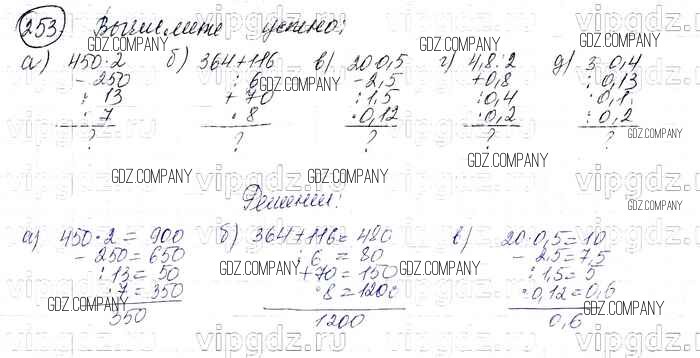 253. Вычислите устно:
а) 450·2 б) 364+116 в) 20·0,5 г) 4,8:2 д) 3·0,4
- 250 : 6 - 2,5 + 0,8 : 0,13
: 13 + 70 : 1,5 : 0,4 · 0,1
· 7 · 8 · 0,12 : 0,2 : 0,2
? ? ? ? ?
Решение:
а) 450·2 = 900 б) 364+116 = 480 в) 20·0,5 = 10
- 250 = 650 : 6 = 80 - 2,5 = 7,5
: 13 = 50 + 70 = 150 : 1,5 = 5
· 7 = 350 · 8 = 1200 · 0,12 = 0,6
350 1200 0,6
GDZ.COMPANY
vipgdz.ru